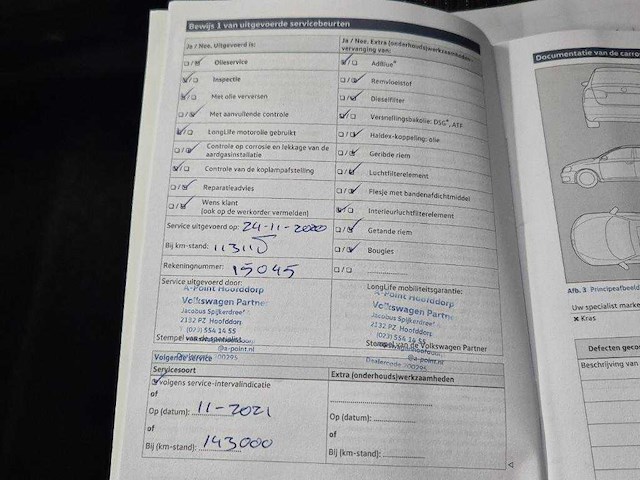 Bewijs 1 van uitgevoerde servicebeurten
Ja / Nee. Uitgevoerd is:
Olieservice
Inspectie
Met olie verversen
Met aanvullende controle
LongLife motorolie gebruikt
Controle op corrosie en lekkage van de
aardgasinstallatie
Controle van de koplampafstelling
Reparatieadvies
Wens klant
(ook op de werkorder vermelden)
Service uitgevoerd op: 24-11-2020
Bij km-stand: 113115
Rekeningnummer: 15045
Service uitgevoerd door:
A-Point Hoofddorp
Volkswagen Partner
Jacobus Spijkerdreef
2132 PZ Hoofddorp
(023) 554 14 55
@a-point.nl
Stempel van de specialist
Dealercode 00295
Ja / Nee. Extra (onderhouds)werkzaamheden -
vervanging van:
AdBlue®
Remvloeistof
Dieselfilter
Versnellingsbakolie: DSG®, ATF
Haldex-koppeling: olie
Geribde riem
Luchtfilterelement
Flesje met bandenafdichtmiddel
Interieurluchtfilterelement
Getande riem
Bougies
LongLife mobiliteitsgarantie:
A-Point Hoofddorp
Volkswagen Partner
Jacobus Spijkerdreef
2132 PZ Hoofddorp
(023) 554 14 55
Stempel van de Volkswagen Partner
@a-point.nl
Dealercode 00295
Volgende service
Servicesoort
volgens service-intervalindicatie
of
Op (datum): 11-2021
of
Bij (km-stand): 143000
Extra (onderhouds)werkzaamheden
Op (datum):
of
Bij (km-stand):
Documentatie van de carro
Afb. 3 Principeafbeeld
Uw specialist marke
× Kras
Defecten gecon
Beschrijving van